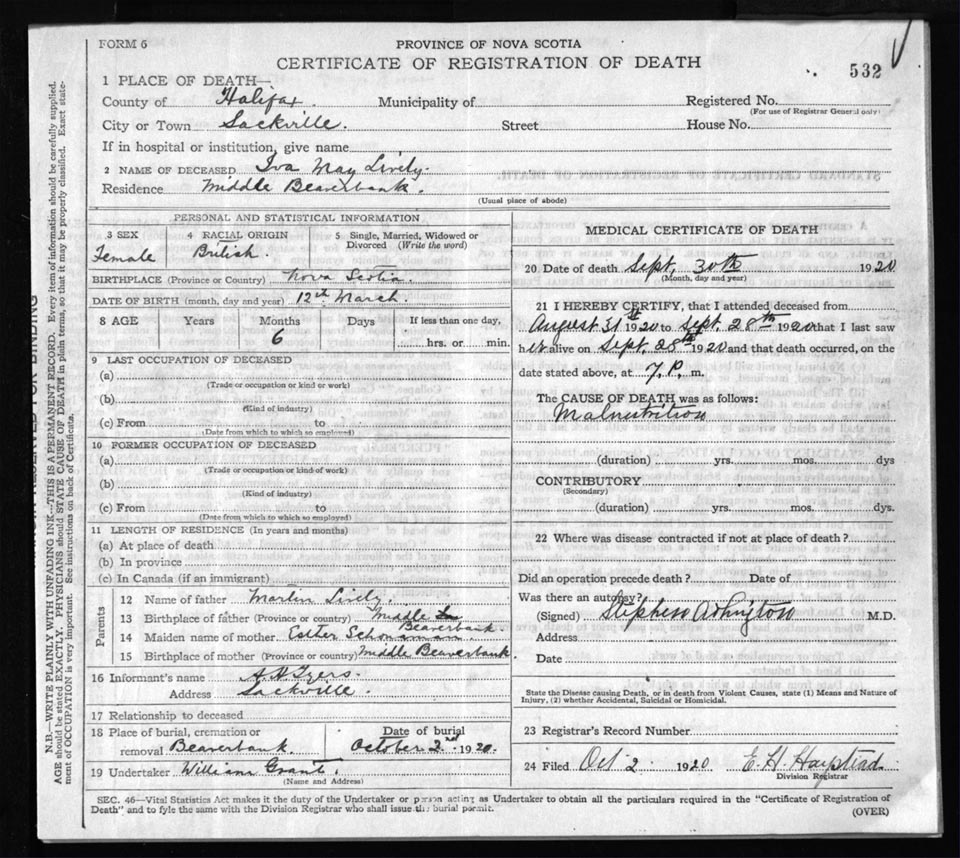 FORM 6
PROVINCE OF NOVA SCOTIA
CERTIFICATE OF REGISTRATION OF DEATH
532
1 PLACE OF DEATH—
County of Halifax. Municipality of Registered No.
(For use of Registrar General only)
City or Town Sackville. Street House No.
If in hospital or institution, give name
2 NAME OF DECEASED Iva May Lively.
Residence Middle Beaverbank.
(Usual place of abode)
PERSONAL AND STATISTICAL INFORMATION
3 SEX 4 RACIAL ORIGIN 5 Single, Married, Widowed or
Divorced (Write the word)
Female British.
BIRTHPLACE (Province or Country) Nova Scotia
DATE OF BIRTH (month, day and year) 12th March.
8 AGE Years Months Days If less than one day,
6 hrs. or min.
9 LAST OCCUPATION OF DECEASED
(a)
(Trade or occupation or kind or work)
(b)
(Kind of industry)
(c) From to
(Date from which to which so employed)
10 FORMER OCCUPATION OF DECEASED
(a)
(Trade or occupation or kind of work)
(b)
(Kind of industry)
(c) From to
(Date from which to which so employed)
11 LENGTH OF RESIDENCE (In years and months)
(a) At place of death
(b) In province
(c) In Canada (if an immigrant)
Parents
12 Name of father Martin Lively.
13 Birthplace of father (Province or country) Middle
Beaverbank.
14 Maiden name of mother Esther
15 Birthplace of mother (Province or country) Middle Beaverbank
16 Informant's name
Address Sackville.
17 Relationship to deceased
18 Place of burial, cremation or Date of burial
removal Beaverbank. October 2nd 1920.
19 Undertaker William Grant.
(Name and Address)
MEDICAL CERTIFICATE OF DEATH
20 Date of death Sept. 30th 1920
(Month, day and year)
21 I HEREBY CERTIFY, that I attended deceased from
August 31st 1920 to Sept. 28th 1920 that I last saw
her alive on Sept. 28th 1920 and that death occurred, on the
date stated above, at 7 P. m.
The CAUSE OF DEATH was as follows:
Malnutrition
(duration) yrs. mos. dys
CONTRIBUTORY
(Secondary)
(duration) yrs. mos. dys.
22 Where was disease contracted if not at place of death?
Did an operation precede death? Date of
Was there an autopsy?
(Signed) Stephen M.D.
Address
Date
State the Disease causing Death, or in death from Violent Causes, state (1) Means and Nature of
Injury, (2) whether Accidental, Suicidal or Homicidal.
23 Registrar's Record Number
24 Filed Oct 2 1920 E. H.
Division Registrar
SEC. 46—Vital Statistics Act makes it the duty of the Undertaker or person acting as Undertaker to obtain all the particulars required in the "Certificate of Registration of
Death" and to fyle the same with the Division Registrar who shall issue the burial permit.
(OVER)
N.B.—WRITE PLAINLY WITH UNFADING INK—THIS IS A PERMANENT RECORD. Every item of information should be carefully supplied.
AGE should be stated EXACTLY. PHYSICIANS should STATE CAUSE OF DEATH in plain terms, so that it may be properly classified. Exact state-
ment of OCCUPATION is very important. See instructions on back of Certificate.